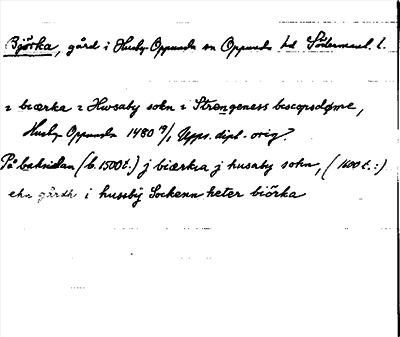 Björka, gård i Husby-Oppunda sn Oppunda hd Södermanl. l.
i biærka i Hwsaby sokn i Strengeness biscopsdøme,
Husby-Oppunda 1480 19/1, Upps. dipl. orig?
På baksidan (b. 1500 t.) j biærkia j husaby sokn, (1600 t.:)
ehn gårdh i hussbÿ Sockenn heter biörka